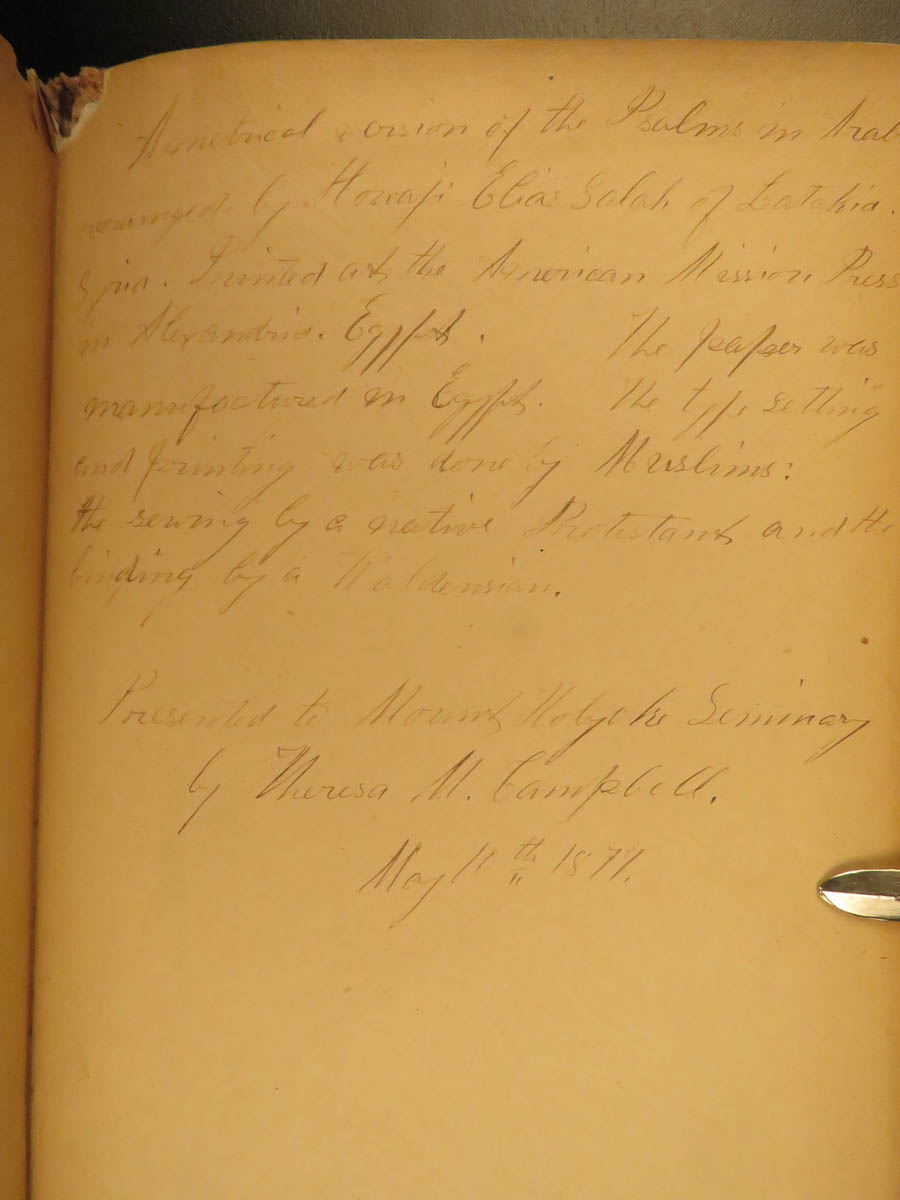 A metrical version of the Psalms in Arab
arranged by Howaji Elias Salah of Latakia.
Syria. Printed at the American Mission Press
in Alexandria. Egypt. The paper was
manufactured in Egypt. The type setting
and printing was done by Muslims:
the sewing by a native Protestant and the
binding by a Waldensian.
Presented to Mount Holyoke Seminary
by Theresa M. Campbell.
May 10th 1877.